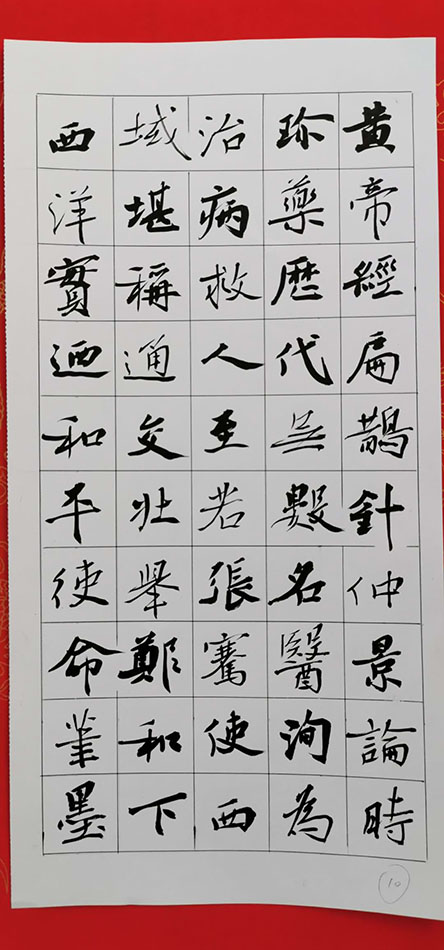 黄帝經扁鵲針仲景論時
珎藥歷代無數名醫洵為
治病救人至若張騫使西
域堪稱通交壯舉鄭和下
西洋實迺和平使命筆墨
10